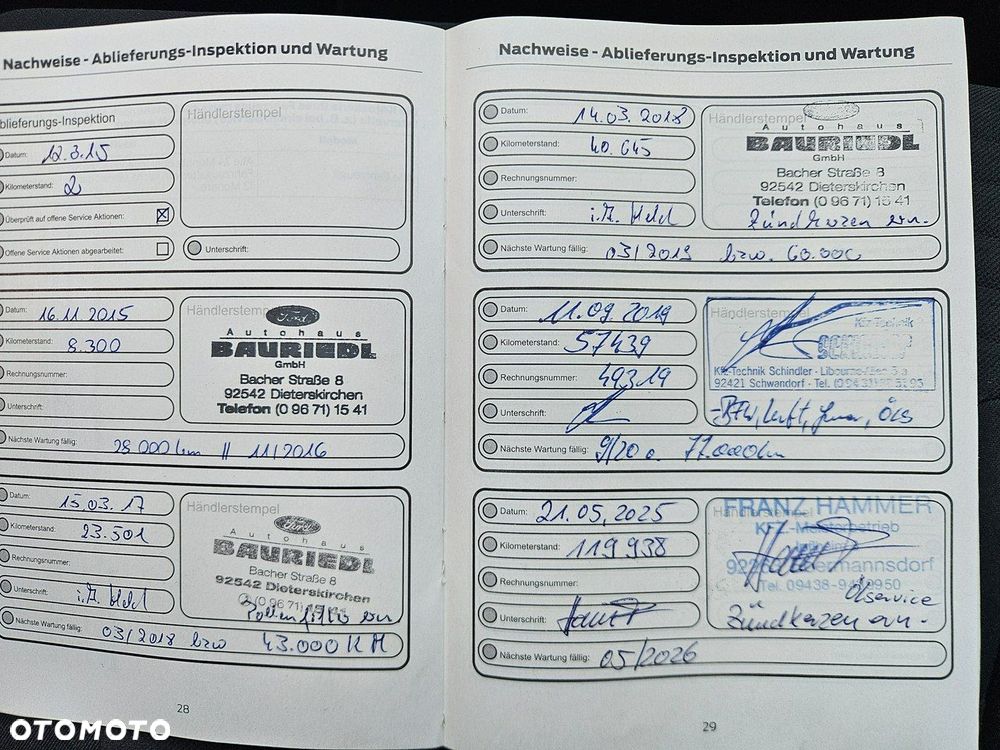 Nachweise - Ablieferungs-Inspektion und Wartung
blieferungs-Inspektion
Händlerstempel
Datum: 12.3.15
Kilometerstand: 2
Überprüft auf offene Service Aktionen:
Offene Service Aktionen abgearbeitet:
Unterschrift:
Datum: 16.11 2015
Händlerstempel
Ford
Kilometerstand: 8.300
Autohaus
BAURIEDL
GmbH
Rechnungsnummer:
Bacher Straße 8
92542 Dieterskirchen
Unterschrift:
Telefon (0 96 71) 15 41
Nächste Wartung fällig: 28 000 km // 11/2016
Datum: 15.03.17
Händlerstempel
Ford
Kilometerstand: 23.501
Autohaus
BAURIEDL
GmbH
Rechnungsnummer:
Bacher Straße 8
92542 Dieterskirchen
Unterschrift: i.A.
(0 96 71) 15 41
Pollenfilter ern
Nächste Wartung fällig: 03/2018 bzw 43.000 KM
28
Nachweise - Ablieferungs-Inspektion und Wartung
Datum: 14.03.2018
Händlerstempel
Autohaus
Kilometerstand: 40.645
BAURIEDL
GmbH
Rechnungsnummer:
Bacher Straße 8
92542 Dieterskirchen
Unterschrift: i.A.
Telefon (0 96 71) 15 41
Zündkerzen ern.
Nächste Wartung fällig: 03/2019 bzw. 60.000
Datum: 11.09.2019
Händlerstempel
Kfz-Technik
Kilometerstand: 57439
Rechnungsnummer: 49319
Kfz-Technik Schindler
92421 Schwandorf - Tel.
Unterschrift:
Nächste Wartung fällig: 9/20 o. 77.000km
Datum: 21.05.2025
FRANZ HAMMER
Händlerstempel
Kilometerstand: 119938
Kfz-Meisterbetrieb
Rechnungsnummer:
Ölservice
Unterschrift:
Zündkerzen ern.
Nächste Wartung fällig: 05/2026
29
OTOMOTO